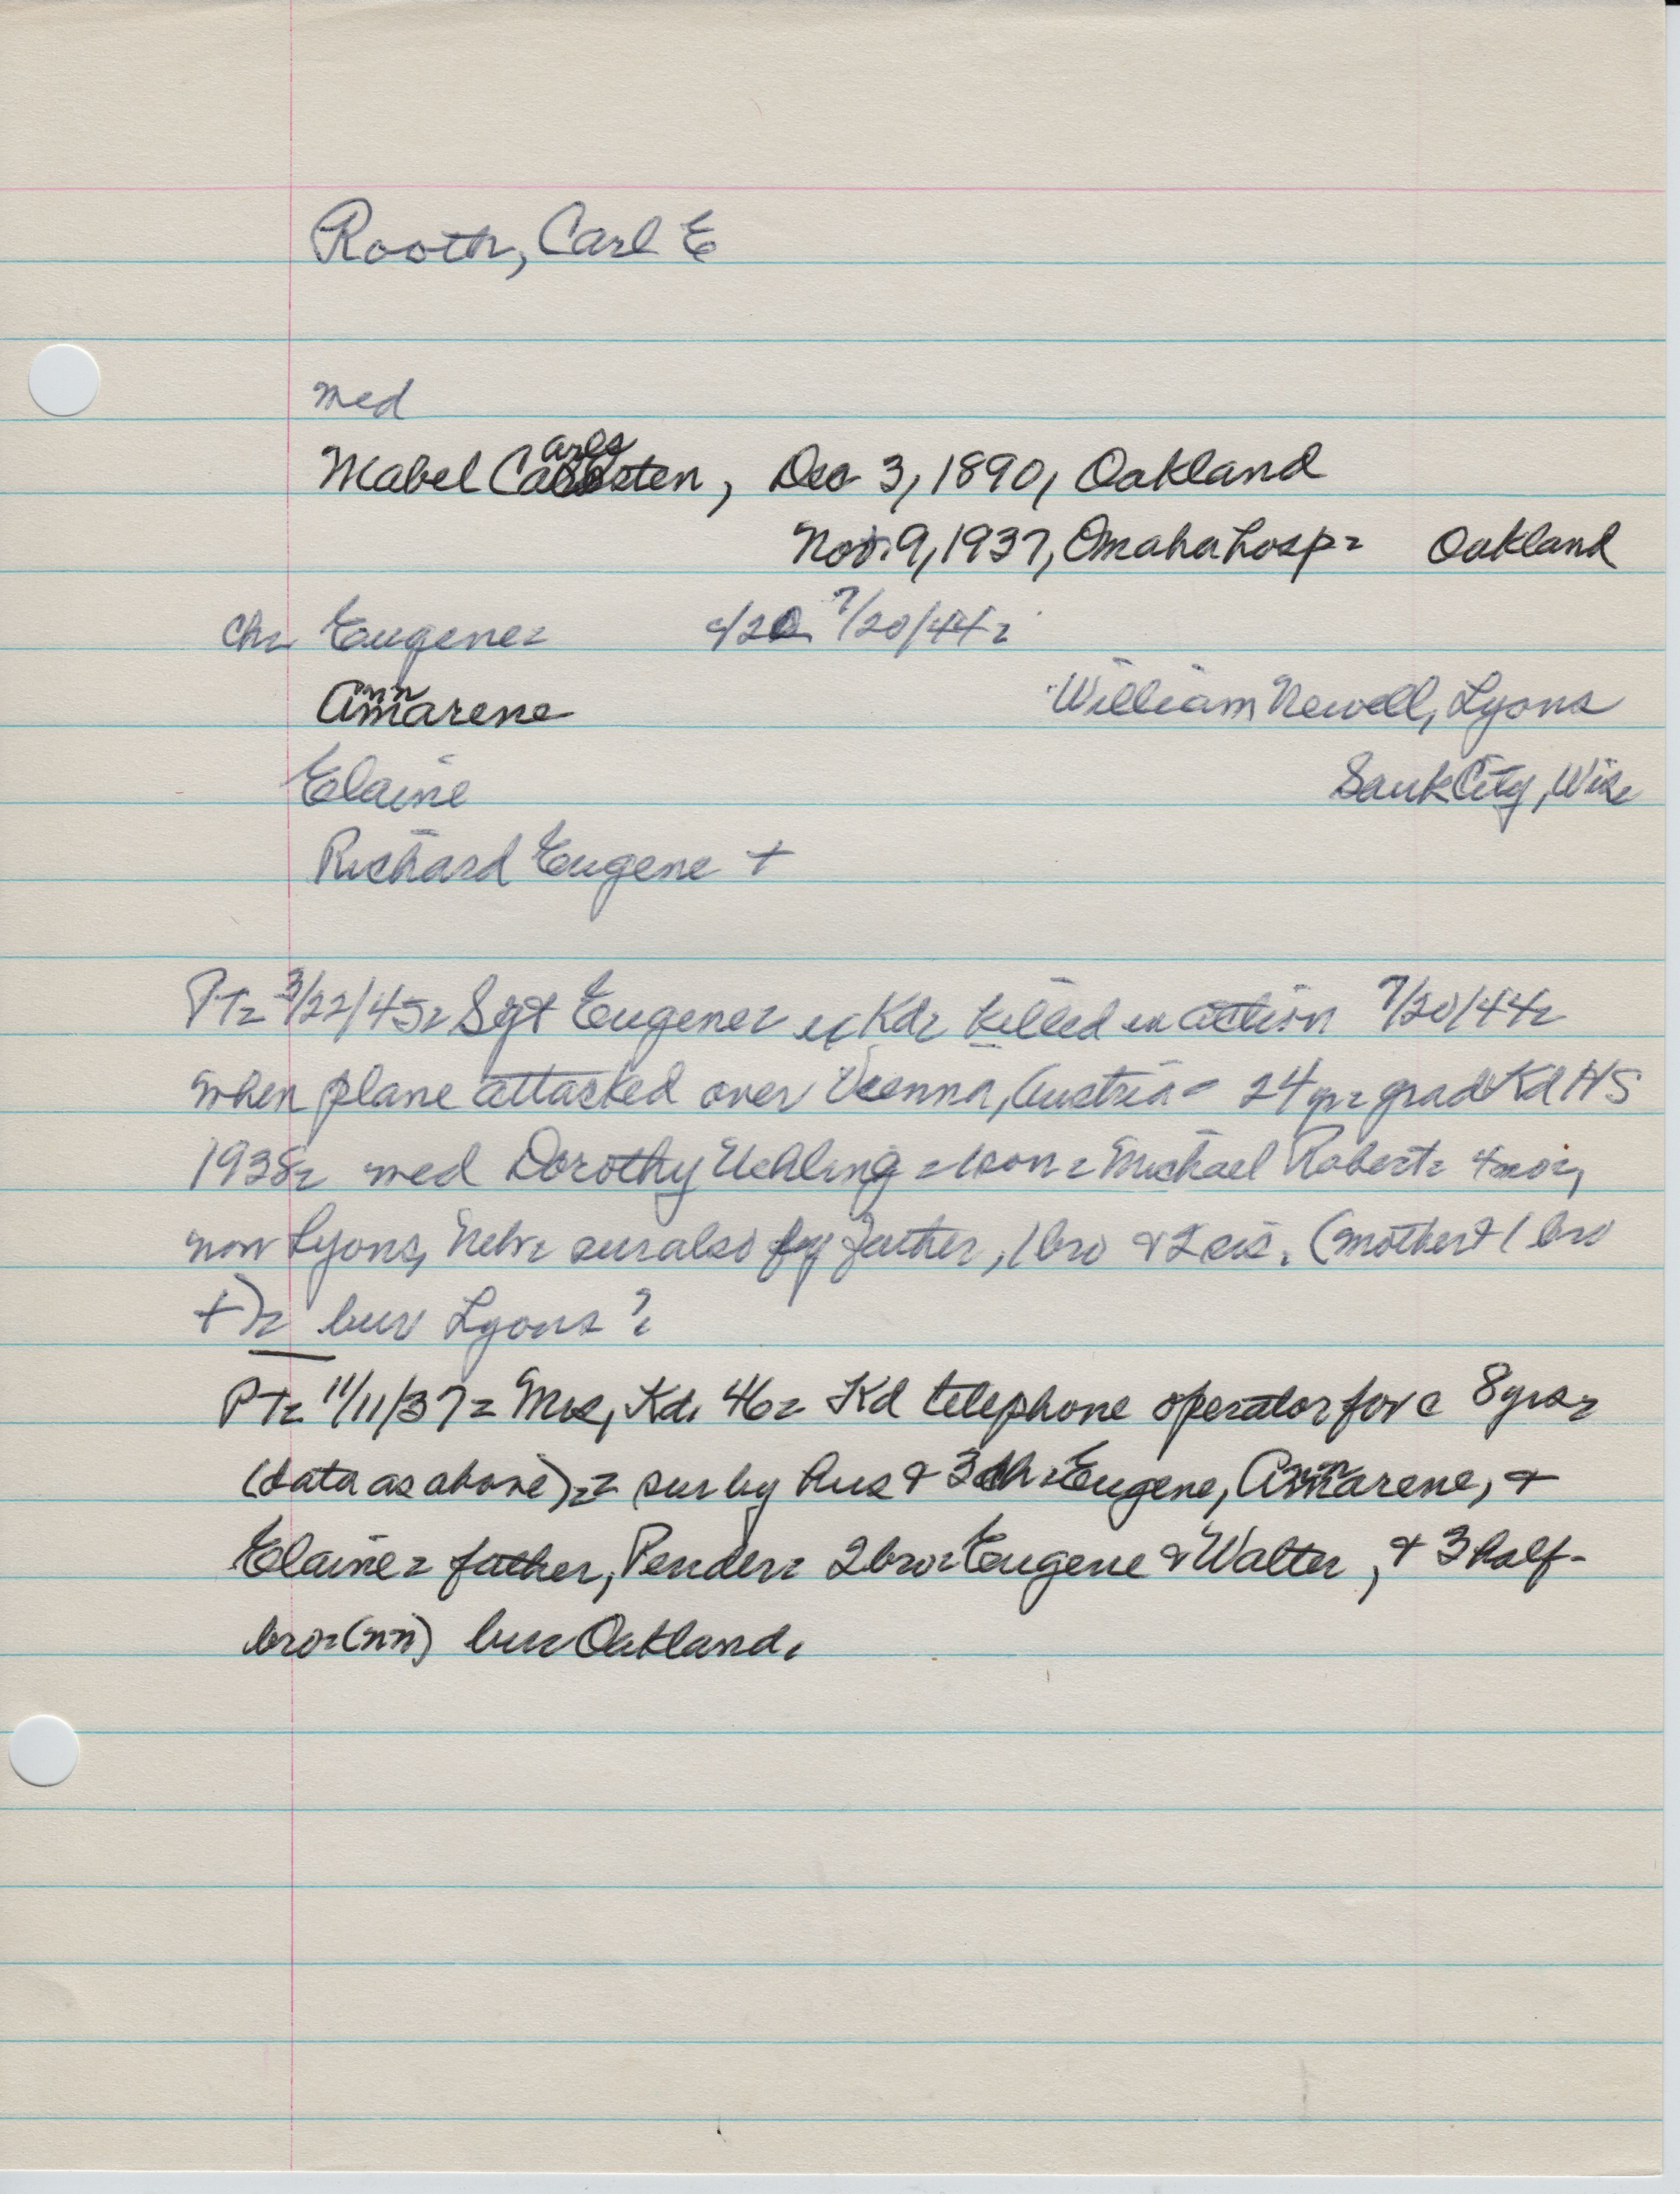 Rooth, Carl E
med
arls
Mabel Carlsten, Dec 3, 1890, Oakland
Nov. 9, 1937, Omaha hosp= Oakland
Ch= Eugene= c/20 7/20/44=
nn
Amarene William Newell, Lyons
Elaine Sauk City, Wis
Richard Eugene +
PT= 3/22/45= Sgt Eugene= Kd= killed in action 7/20/44=
when plane attacked over Vienna, Austria= 24 yr= grad Kd HS
1938= med Dorothy Uehling = 1 son= Michael Robert= 4 mo,
now Lyons, Nebr= sur also by father, 1 bro & 2 sis. (mother & 1 bro
+)= bur Lyons?
PT= 11/11/37= Mrs, Kd, 46= Kd telephone operator for c 8 yrs=
(data as above)= sur by hus & 3 ch= Eugene, Annarene, &
Elaine= father, Pender= 2 bro= Eugene & Walter, & 3 half-
bro=(nn) bur Oakland.